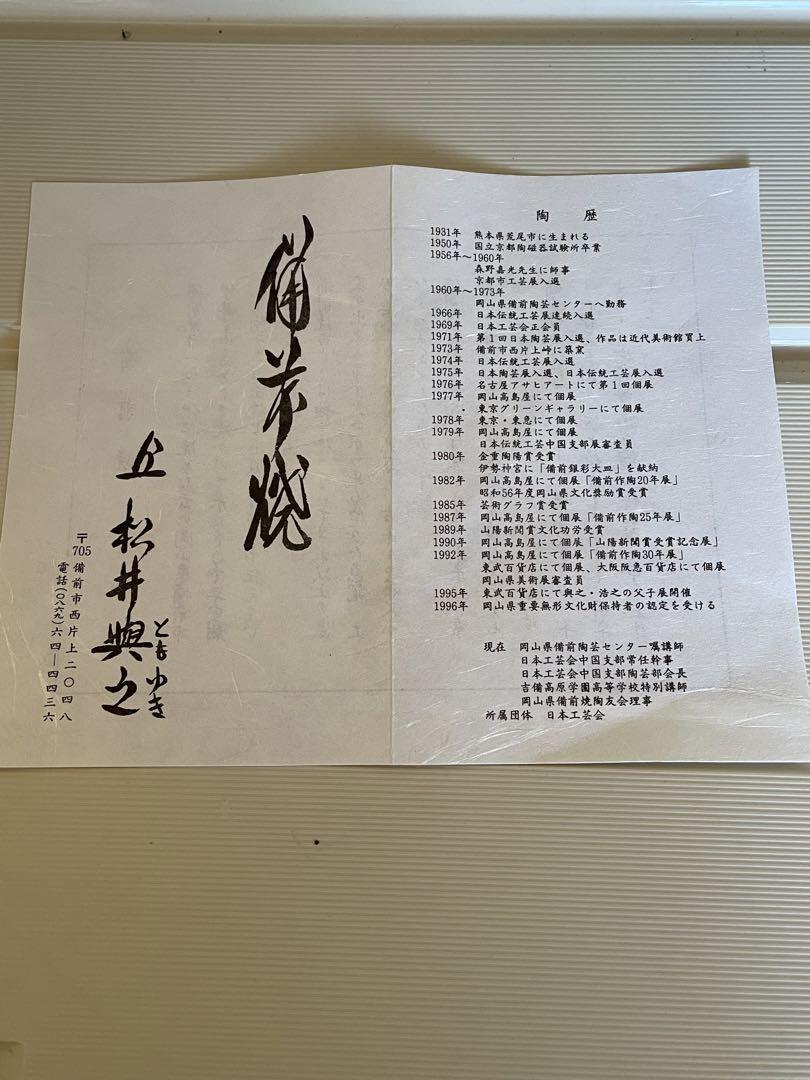 陶歴
1931年 熊本県荒尾市に生まれる
1950年 国立京都陶磁器試験所卒業
1956年～1960年
森野嘉光先生に師事
京都市工芸展入選
1960年～1973年
岡山県備前陶芸センターへ勤務
1966年 日本伝統工芸展連続入選
1969年 日本工芸会正会員
1971年 第1回日本陶芸展入選、作品は近代美術館買上
1973年 備前市西片上峠に築窯
1974年 日本伝統工芸展入選
1975年 日本陶芸展入選、日本伝統工芸展入選
1976年 名古屋アサヒアートにて第1回個展
1977年 岡山高島屋にて個展
東京グリーンギャラリーにて個展
1978年 東京・東急にて個展
1979年 岡山高島屋にて個展
日本伝統工芸中国支部展審査員
1980年 金重陶陽賞受賞
伊勢神宮に「備前銀彩大皿」を献納
1982年 岡山高島屋にて個展「備前作陶20年展」
昭和56年度岡山県文化奨励賞受賞
1985年 芸術グラフ賞受賞
1987年 岡山高島屋にて個展「備前作陶25年展」
1989年 山陽新聞賞文化功労受賞
1990年 岡山高島屋にて個展「山陽新聞賞受賞記念展」
1992年 岡山高島屋にて個展「備前作陶30年展」
東武百貨店にて個展、大阪阪急百貨店にて個展
岡山県美術展審査員
1995年 東武百貨店にて與之・浩之の父子展開催
1996年 岡山県重要無形文化財保持者の認定を受ける
現在 岡山県備前陶芸センター嘱講師
日本工芸会中国支部常任幹事
日本工芸会中国支部陶芸部会長
吉備高原学園高等学校特別講師
岡山県備前焼陶友会理事
所属団体 日本工芸会
備前焼
松井與之
ともゆき
〒705 備前市西片上二〇四八
電話(〇八六九)六四―四四三六